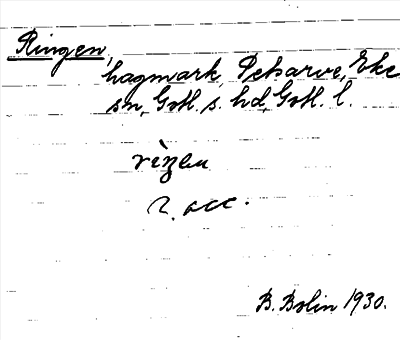 Ringen,
hagmark, Petsarve, Eke
sn, Gotl. s. hd, Gotl. l.
rìŋen
2. acc.
B. Bolin 1930.